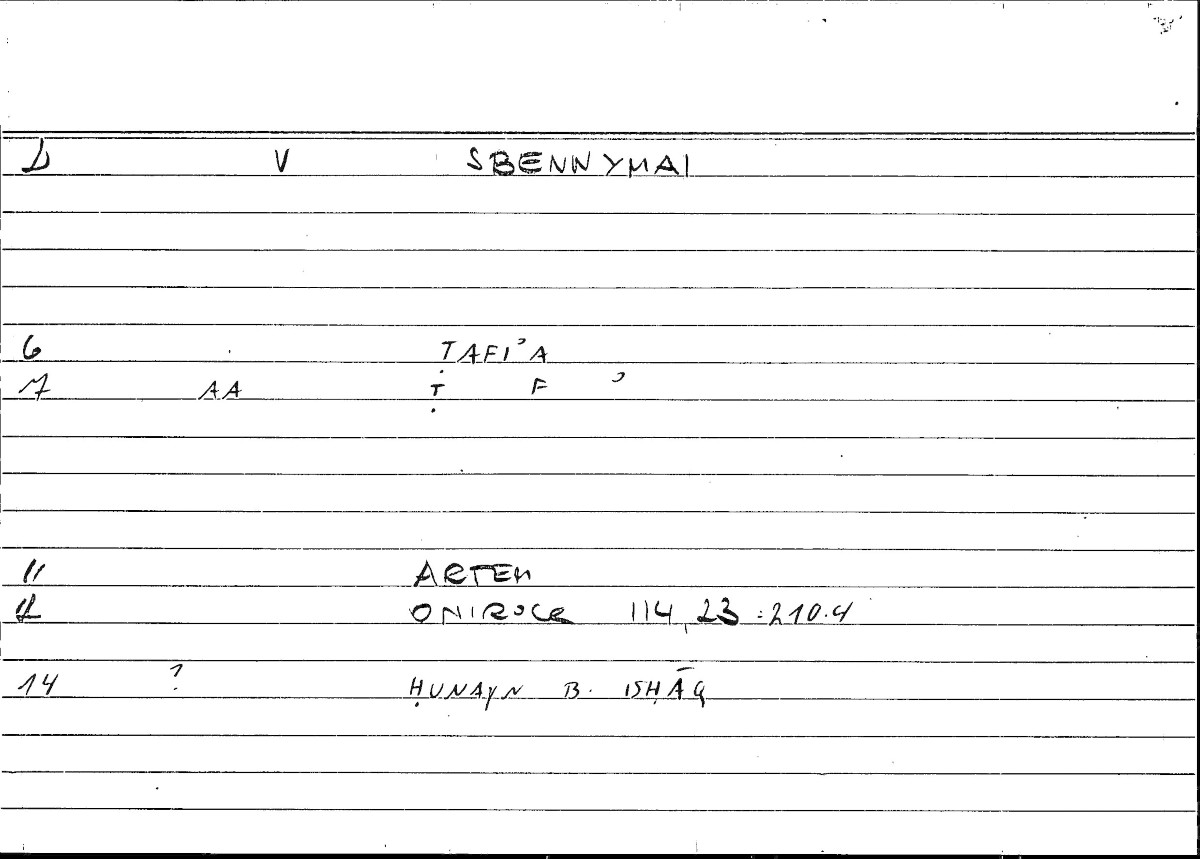 1 V SBENNYMAI
6 ṬAFI'A
7 AA Ṭ F '
11 ARTEM
12 ONIROCR 114,23 : 210.4
14 ? ḤUNAYN B. ISḤĀQ